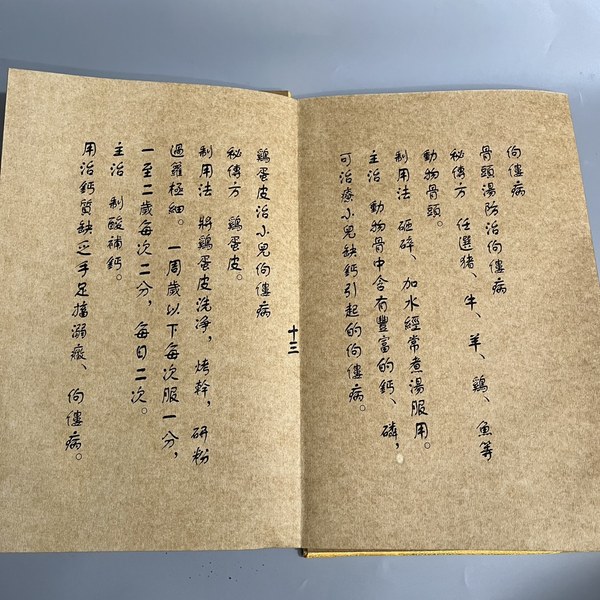 佝僂病
骨頭湯防治佝僂病
秘傳方 任選猪、牛、羊、鷄、魚等
動物骨頭。
制用法 砸碎、加水經常煮湯服用。
主治 動物骨中含有豐富的鈣、磷，
可治療小兒缺鈣引起的佝僂病。
十三
鷄蛋皮治小兒佝僂病
秘傳方 鷄蛋皮。
制用法 將鷄蛋皮洗净，烤幹，研粉
過籮極細。一周歲以下每次服一分，
一至二歲每次二分，每日二次。
主治 制酸補鈣。
用治鈣質缺乏手足搐溺瘢、佝僂病。